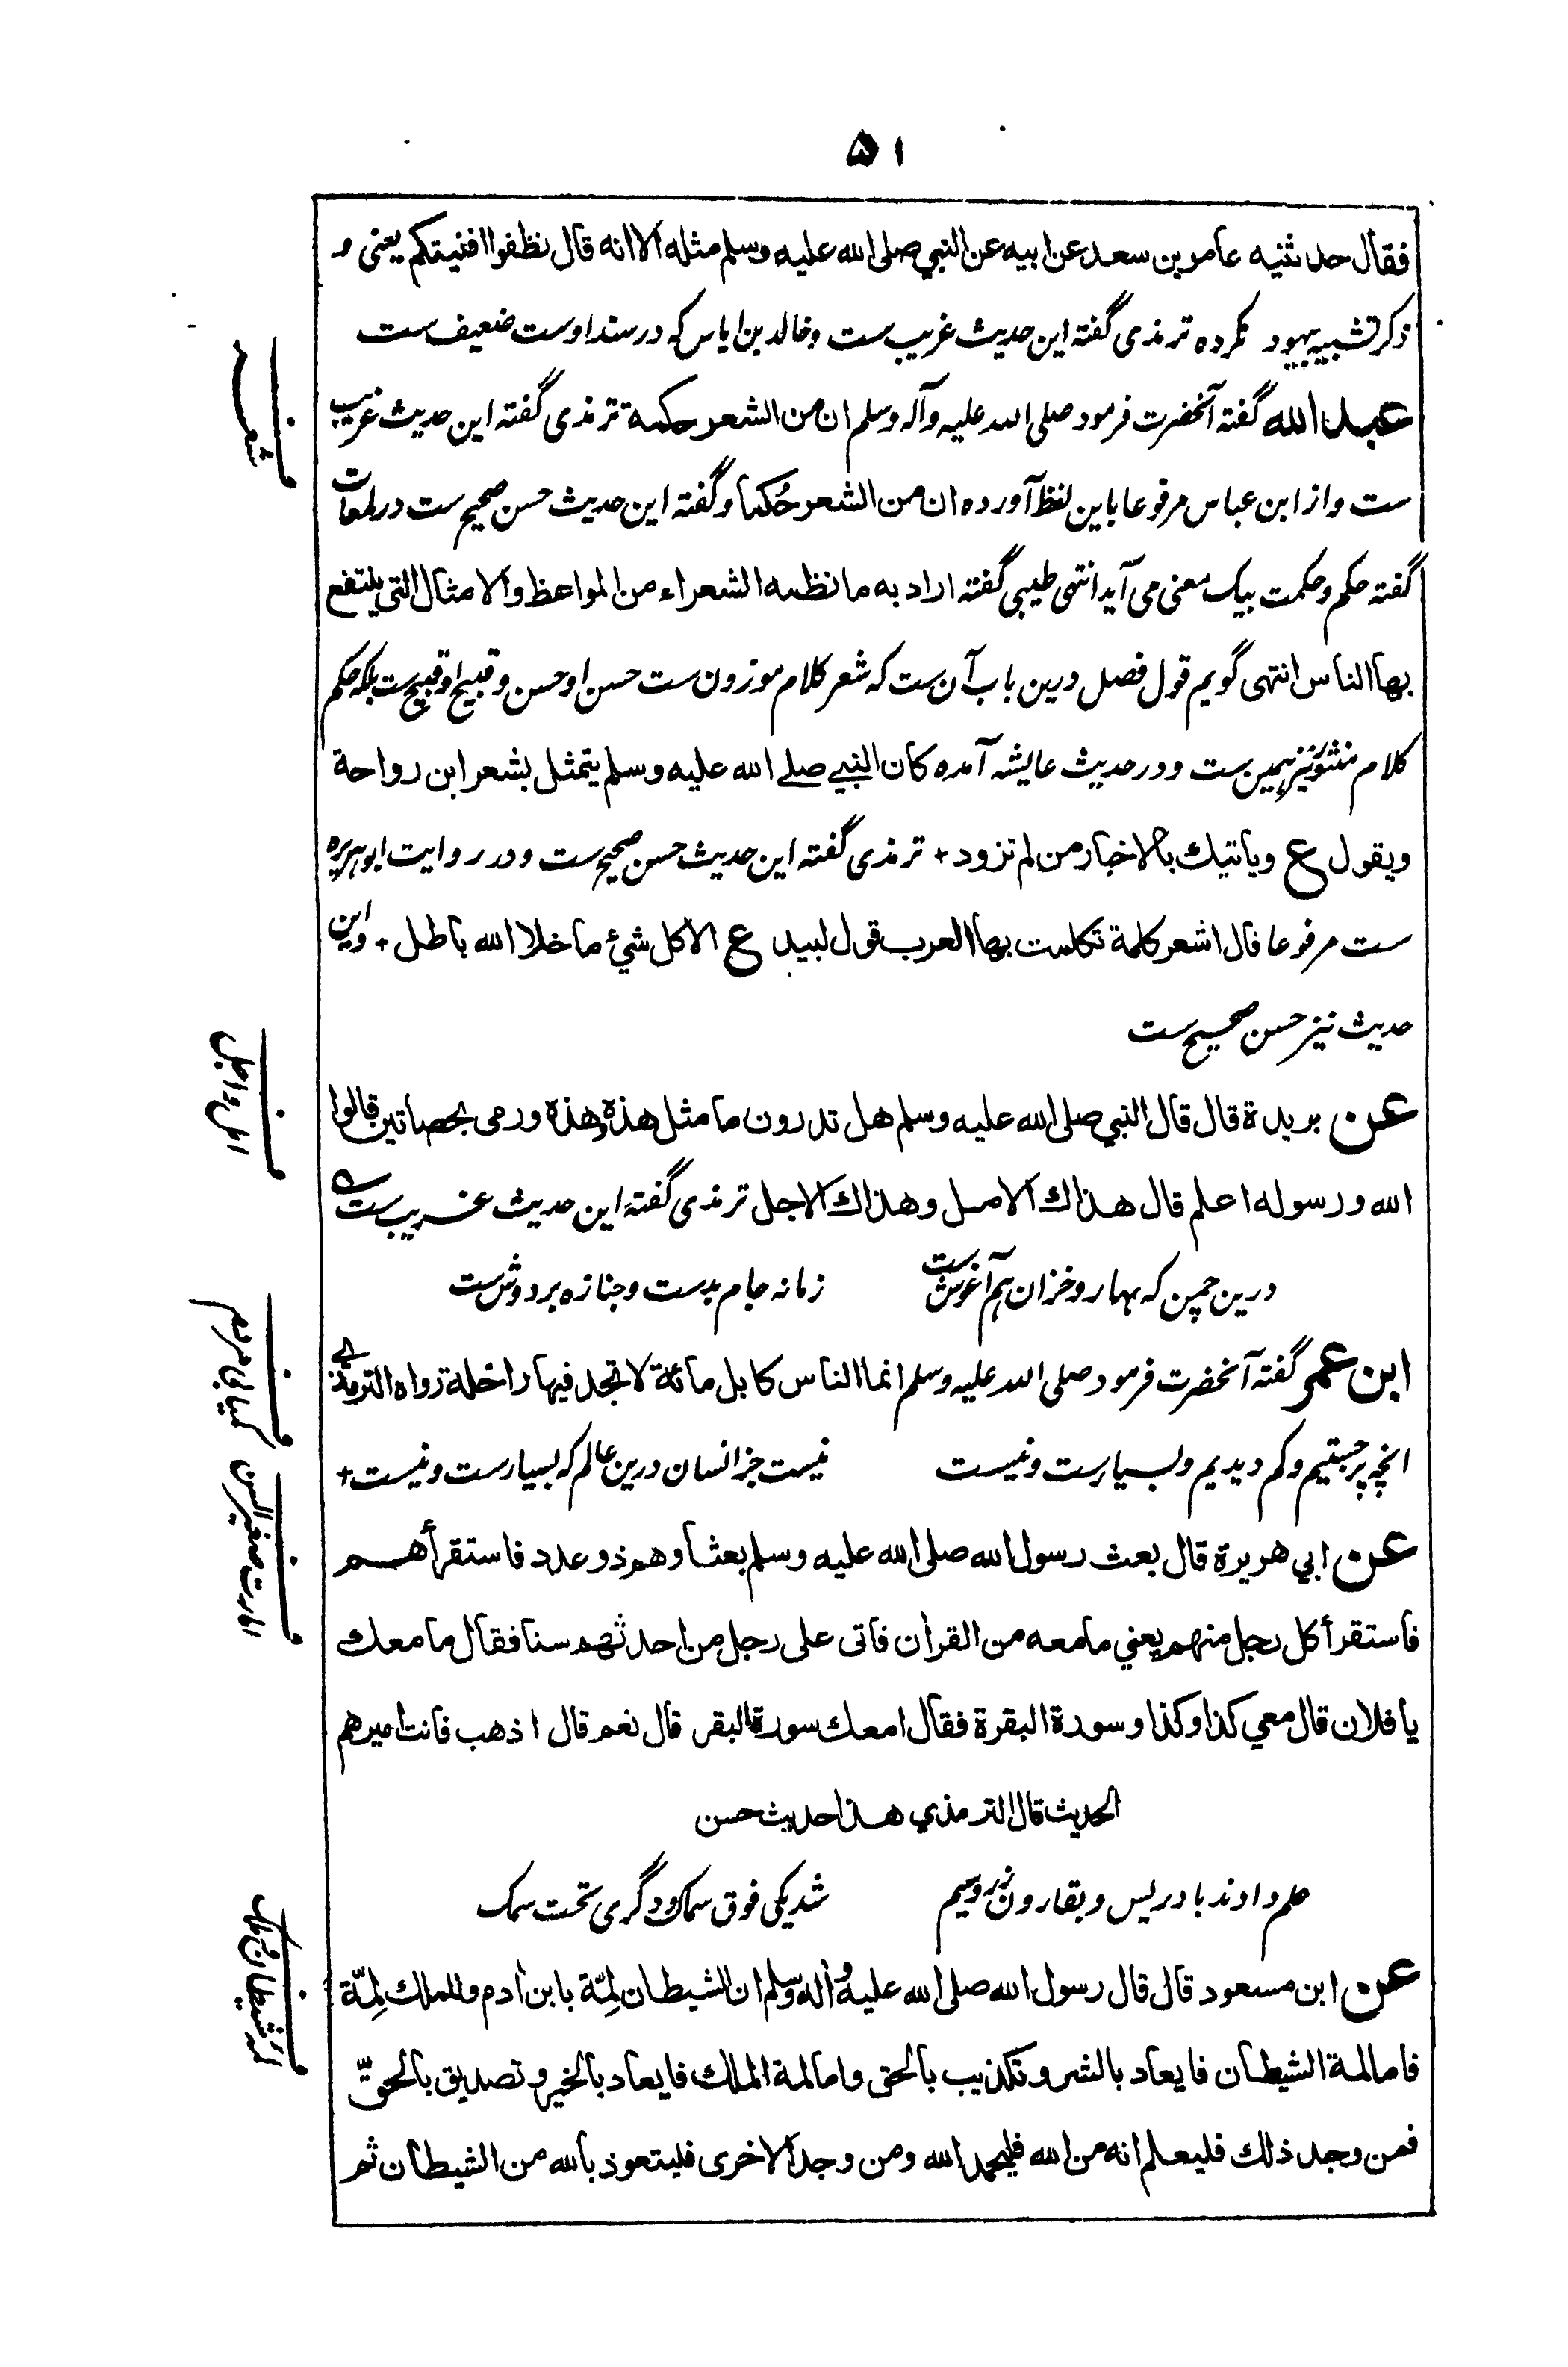 ۵۱
فقال حدثنيه عامر بن سعد عن ابيه عن النبي صلى الله عليه وسلم مثله الا انه قال نظفوا افنيتكم يعنى و
ذكر تشبيه بيهود نكرده ترمذى گفته اين حديث غريب ست وخالد بن اياس كه در سند اوست ضعيف ست
شعر
عبد الله گفته آنحضرت فرمود صلى الله عليه وآله وسلم ان من الشعر حكمة ترمذى گفته اين حديث غريب
ست واز ابن عباس مرفوعا باين لفظ آورده ان من الشعر حُكما وگفته اين حديث حسن صحيح ست در لمعات
گفته حكم وحكمت بيك معنى مى آيد انتهى طيبى گفته اراد به ما نظمه الشعراء من المواعظ والامثال التي ينتفع
بها الناس انتهى گويم قول فصل درين باب آن ست كه شعر كلام موزون ست حسن او حسن و قبيح او قبيح ست بلكه حكم
كلام منثور نيز همين ست ودر حديث عايشه آمده كان النبي صلے الله عليه وسلم يتمثل بشعر ابن رواحة
ويقول ع وياتيك بالاخبار من لم تزود + ترمذى گفته اين حديث حسن صحيح ست ودر روايت ابو هريره
ست مرفوعا قال اشعر كلمة تكلمت بها العرب قول لبيد ع الا كل شيء ما خلا الله باطل + واين
حديث نيز حسن صحيح ست
امل واجل
عن بريدة قال قال النبي صلى الله عليه وسلم هل تدرون ما مثل هذه وهذه ورمى بحصاتين قالوا
الله ورسوله اعلم قال هذاك الامل وهذاك الاجل ترمذى گفته اين حديث غريب ست ه
درين چمن كه بهار وخزان هم آغوش ست زمانه جام بدست وجنازه بردوش ست
كميابى مردم
ابن عمر گفته آنحضرت فرمود صلى الله عليه وسلم انما الناس كابل مائة لا تجد فيها راحلة رواه الترمذي
انچه پر جستيم وكم ديديم وبسيارست ونيست نيست جز انسان درين عالم كه بسيارست ونيست +
امارت صغير السن
عن ابي هريرة قال بعث رسول الله صلى الله عليه وسلم بعثا وهم ذو عدد فاستقرأهم
فاستقرأ كل رجل منهم يعني ما معه من القران فاتى على رجل من احدثهم سنا فقال ما معك
يا فلان قال معي كذا وكذا وسورة البقرة فقال امعك سورة البقر قال نعم قال اذهب فانت اميرهم
الحديث قال الترمذي هذا حديث حسن
علم دادند بادريس وبقارون زر وسيم شد يكى فوق سماك ودگرى تحت سمك
لمۀ شيطان وملك
عن ابن مسعود قال قال رسول الله صلى الله عليه وآله وسلم ان للشيطان لِمّة بابن ادم وللملك لِمّة
فاما لمة الشيطان فايعاد بالشر وتكذيب بالحق واما لمة الملك فايعاد بالخير وتصديق بالحقّ
فمن وجد ذلك فليعلم انه من الله فليحمد الله ومن وجد الاخرى فليتعوذ بالله من الشيطان ثم